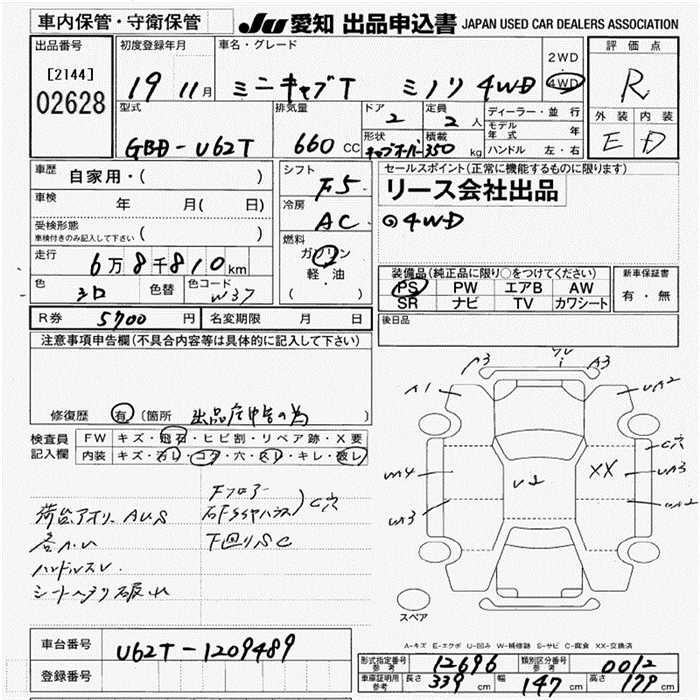 車内保管・守衛保管
JU 愛知 出品申込書 JAPAN USED CAR DEALERS ASSOCIATION
出品番号
[2144]
02628
初度登録年月
19 11月
車名・グレード
ミニキャブT ミノリ 4WD
2WD
4WD
評価点
R
外装 内装
E D
型式
GBD-U62T
排気量
660 CC
ドア
2
定員
2 人
形状
キャブオーバー
積載
350 kg
ディーラー・並行
モデル年式 年
ハンドル 左・右
車歴
自家用・( )
車検
年 月( 日)
受検形態
車検付きのみ記入して下さい ( )
走行
6万8千810km
色
シロ
色替
色コード
W37
シフト
F5
冷房
AC
燃料
ガソリン
軽・油
( )
セールスポイント(正常に機能するものに限ります)
リース会社出品
◎4WD
装備品(純正品に限り○をつけてください)
PS PW エアB AW
SR ナビ TV カワシート
新車保証書
有・無
後日品
R券 5700 円 名変期限 月 日
注意事項申告欄(不具合内容等は具体的に記入して下さい)
修復歴 有 (箇所 出品店申告の為 )
検査員
記入欄
FW キズ・飛石・ヒビ割・リペア跡・X要
内装 キズ・汚レ・コゲ・穴・スレ・キレ・破レ
荷台アオリ AUS
Fフロアー
石Fタイヤハウス
C穴
下回りSC
ハンドルスレ
A3
A3
A1
UA2
C穴
UA3
XX
U2
スペア
A-キズ E-エクボ U-凹み W-補修跡 S-サビ C-腐食 XX-交換済
車台番号 U62T-1209489
登録番号
形式指定番号 参考 12696 類別区分番号 参考 0012
車庫証明用 参考 長さ 339 cm 幅 147 cm 高さ 179 cm